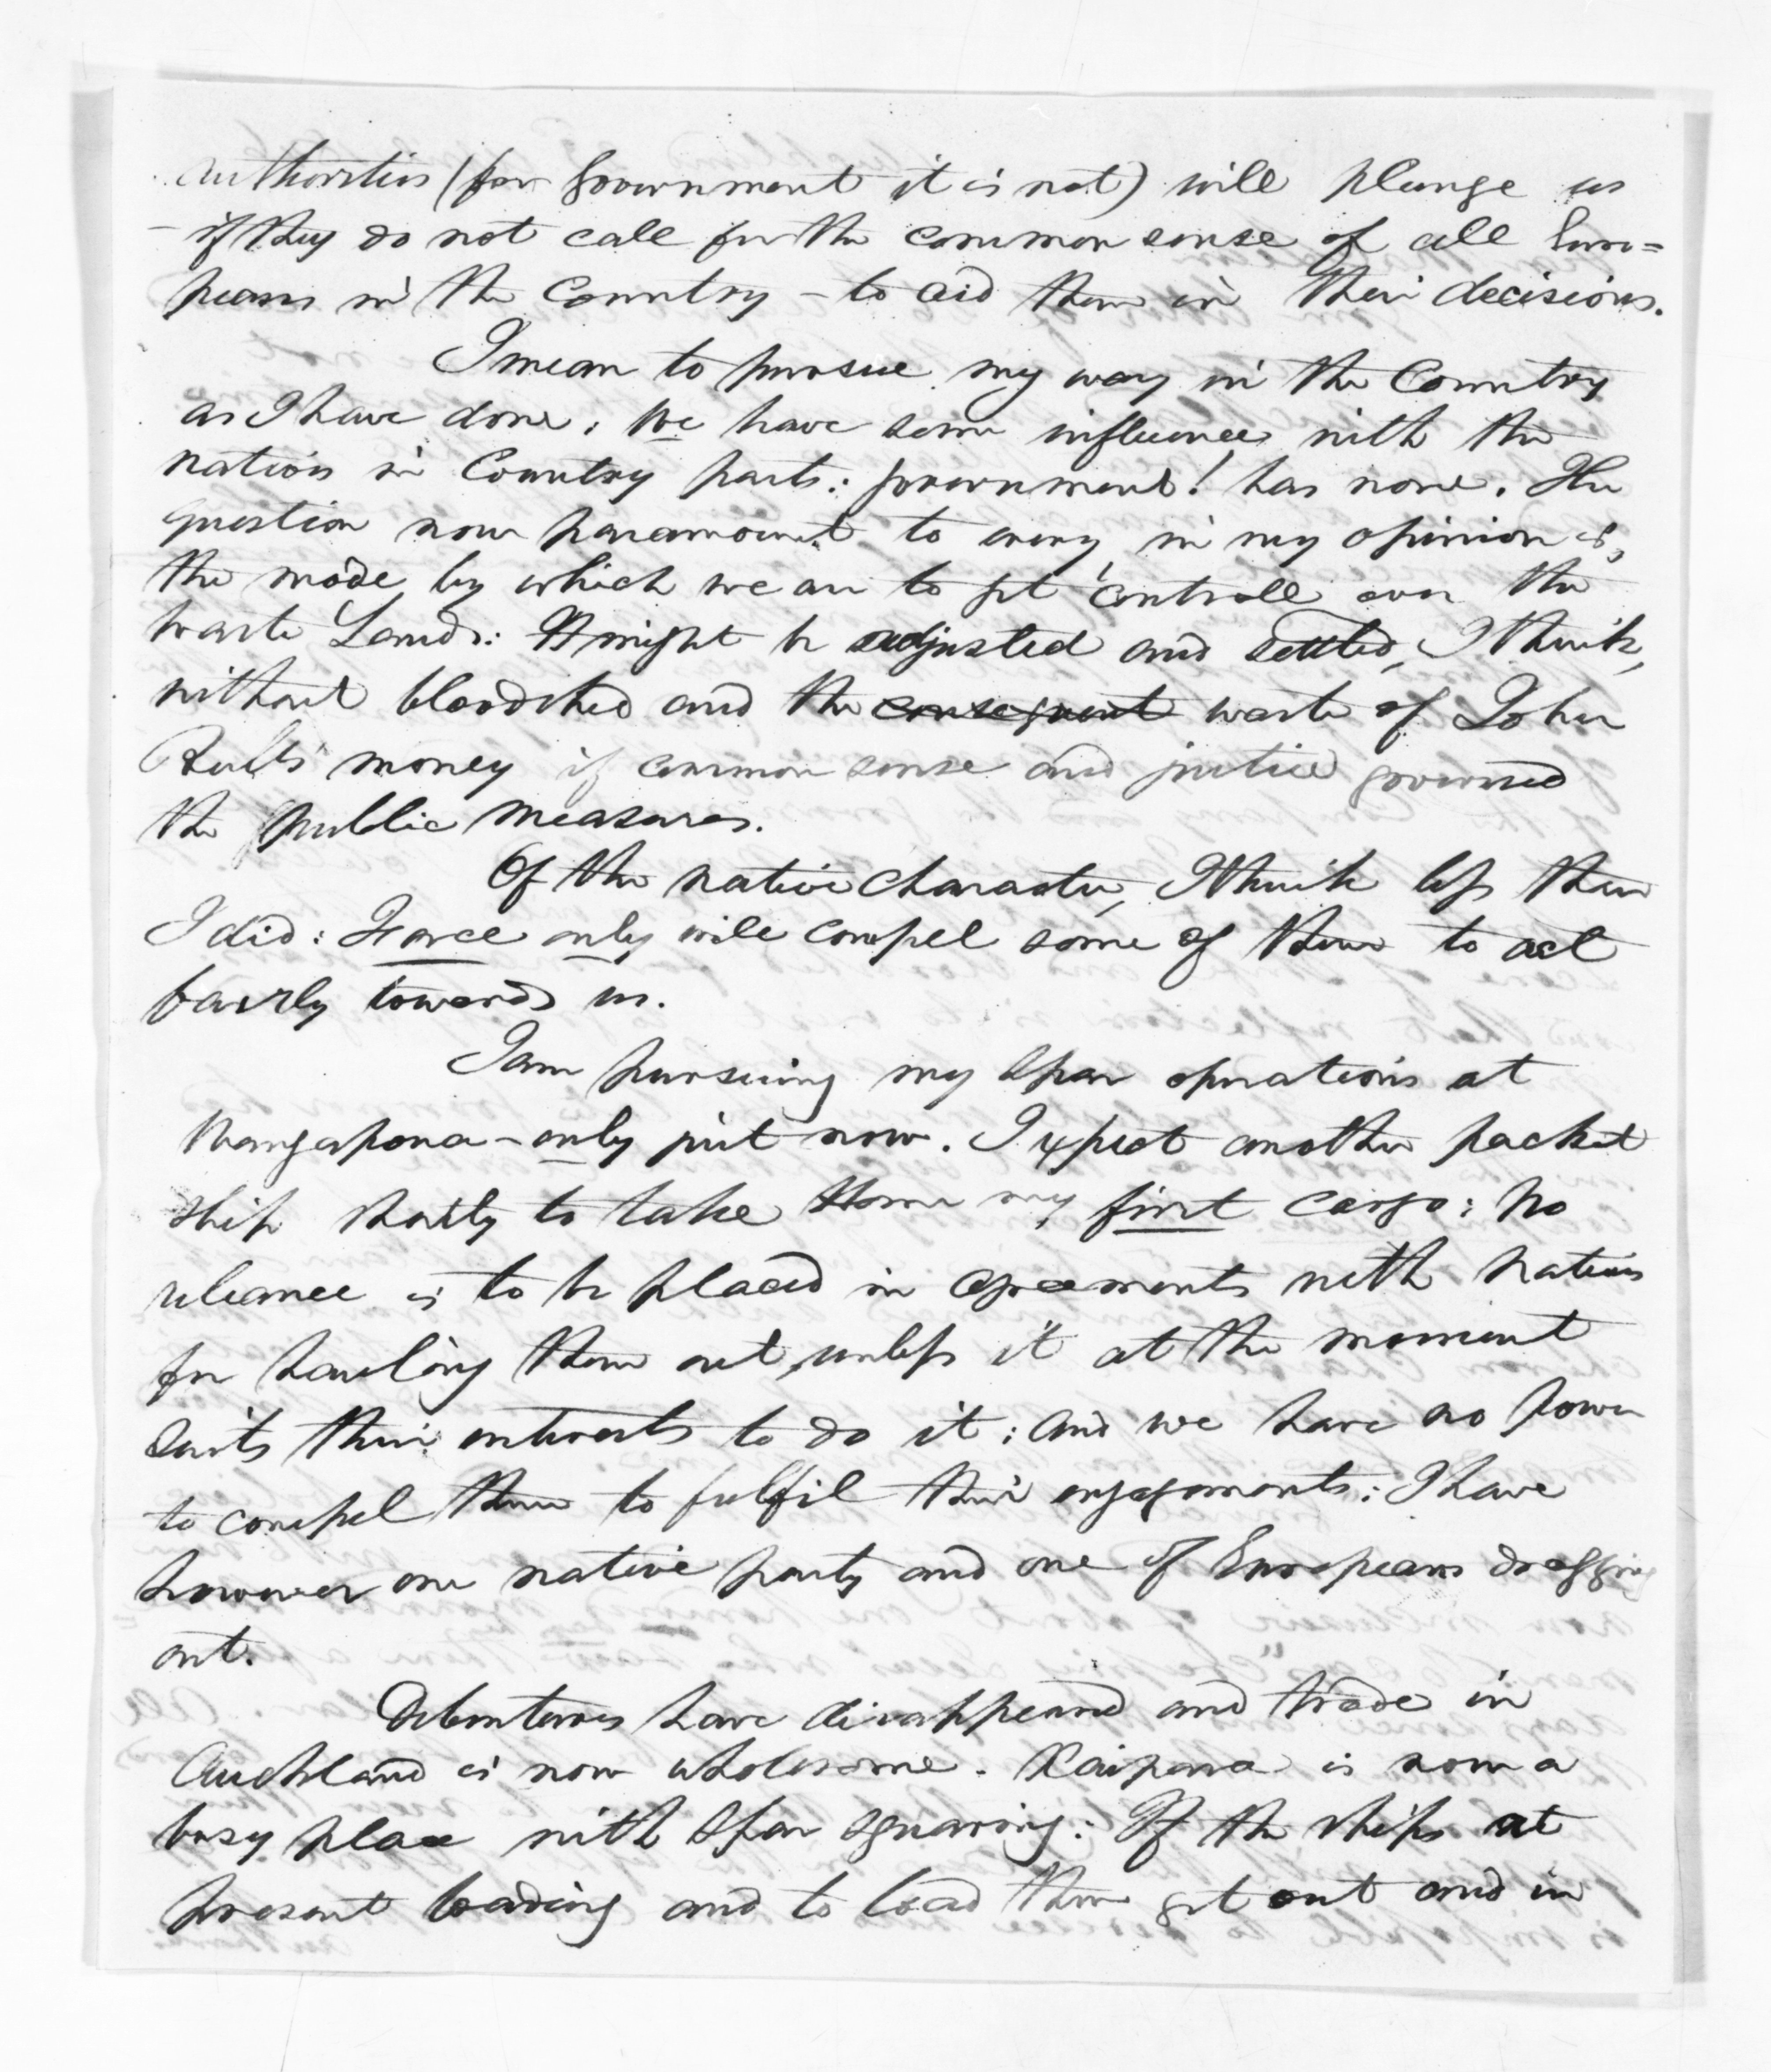 authorities (for Government it is not) will plunge us
- if they do not call for the common sense of all Euro=
peans in the Country - to aid them in their decisions.
I mean to pursue my way in the Country
as I have done. We have some influence with the
natives in Country parts: government! has none. The
question now paramount to every, in my opinion is,
the mode by which we are to get controll over the
waste Lands: It might be adjusted and settled, I think,
without bloodshed and the consequent waste of John
Bull's money if common sense and justice governed
the public measures.
Of the native character, I think less than
I did: Force only will compel some of them to act
fairly towards us.
I am pursuing my spar operations at
Mangapona - only just now. I expect another packet
ship shortly to take Home my first cargo: No
reliance is to be placed in agreements with Natives
for hauling them out, unless it at the moment
suits their interests to do it: and we have no power
to compel them to fulfil their engagements: I have
however one native party and one of Europeans dragging
out.
Debentures have disappeared and trade in
Auckland is now wholesome. Kaipara is now a
busy place with spar squaring: If the ships at
present loading and to load there get out and in